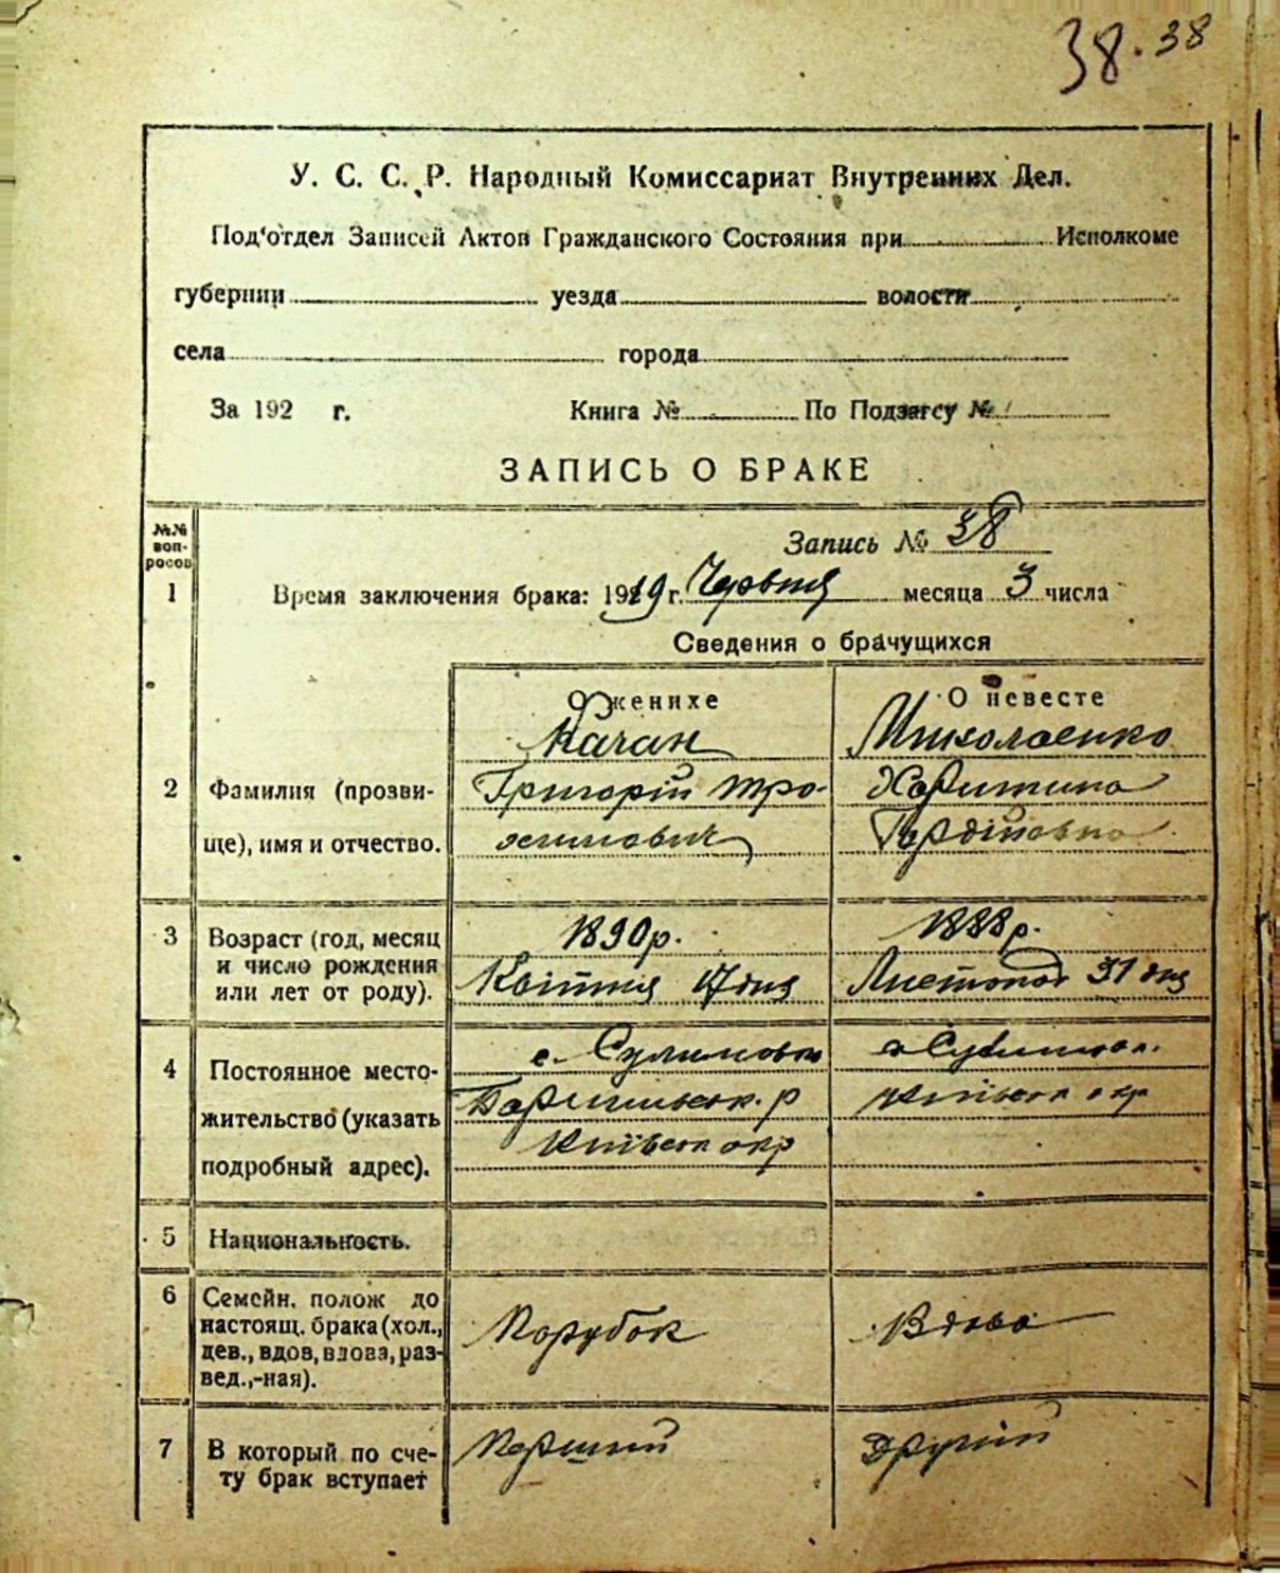 38. 38
У. С. С. Р. Народный Комиссариат Внутренних Дел.
Под'отдел Записей Актов Гражданского Состояния при Исполкоме
губернии уезда волости
села города
За 192 г. Книга № По Подзагсу №
ЗАПИСЬ О БРАКЕ
№№ воп-
росов
Запись № 38
1 Время заключения брака: 1919 г. Червня месяца 3 числа
Сведения о брачущихся
О женихе О невесте
Качан Миколаенко
2 Фамилия (прозви- Григорій Тро- Харитина
ще), имя и отчество. химович Гордіювна
3 Возраст (год, месяц 1890р. 1888р.
и число рождения Квітня 17 дня Листопод 31 дня
или лет от роду).
4 Постоянное место- с. Сулимовка с Сулимовк.
жительство (указать Баришевск. р Київськ окр
подробный адрес). Київськ окр
5 Национальность.
6 Семейн. полож до
настоящ. брака (хол., Порубок Вдова
дев., вдов, вдова, раз-
вед.,-ная).
7 В который по сче- Перший Другий
ту брак вступает